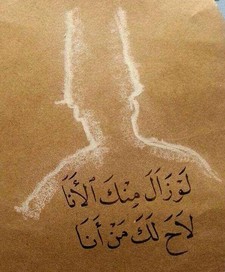 لَوْ زَالَ مِنْكَ ٱلأَنَا
لاَحَ لَكَ مَنْ أَنَا